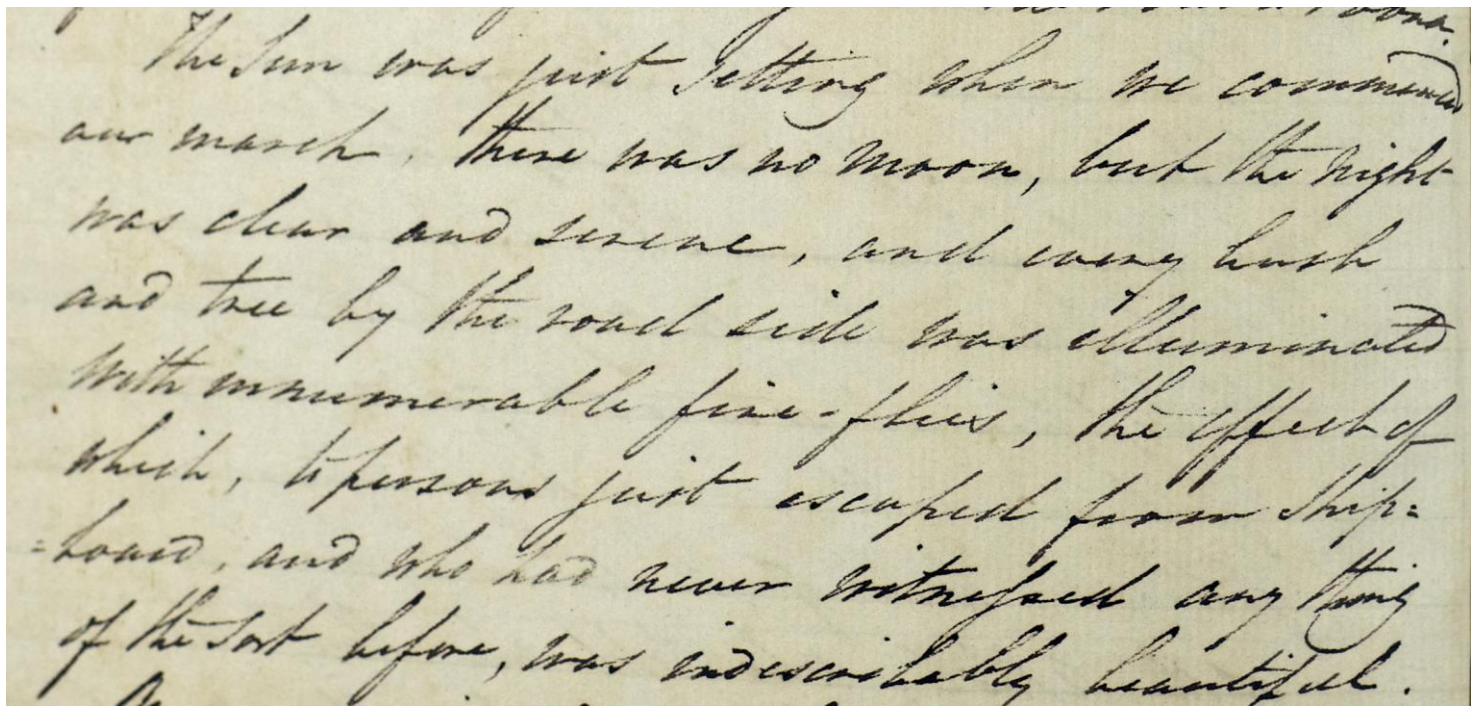 The Sun was just setting when we commenced
our march. there was no moon, but the night
was clear and serene, and every bush
and tree by the road side was illuminated
with innumerable fire-flies, the effect of
which, to persons just escaped from Ship=
=board, and who had never witnessed any thing
of the sort before, was indescribably beautiful.